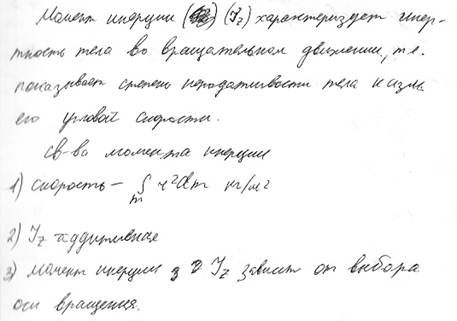 Момент инерции (J_z) характеризует инер-
тность тела во вращательном движении, т.е.
показывает степень неподатливости тела к изм
его угловой скорости.
св-ва момента инерции
1) скорость – ∫_m r²dm кг/м²
2) J_z аддитивная
3) момент инерции J_z зависит от выбора
оси вращения.